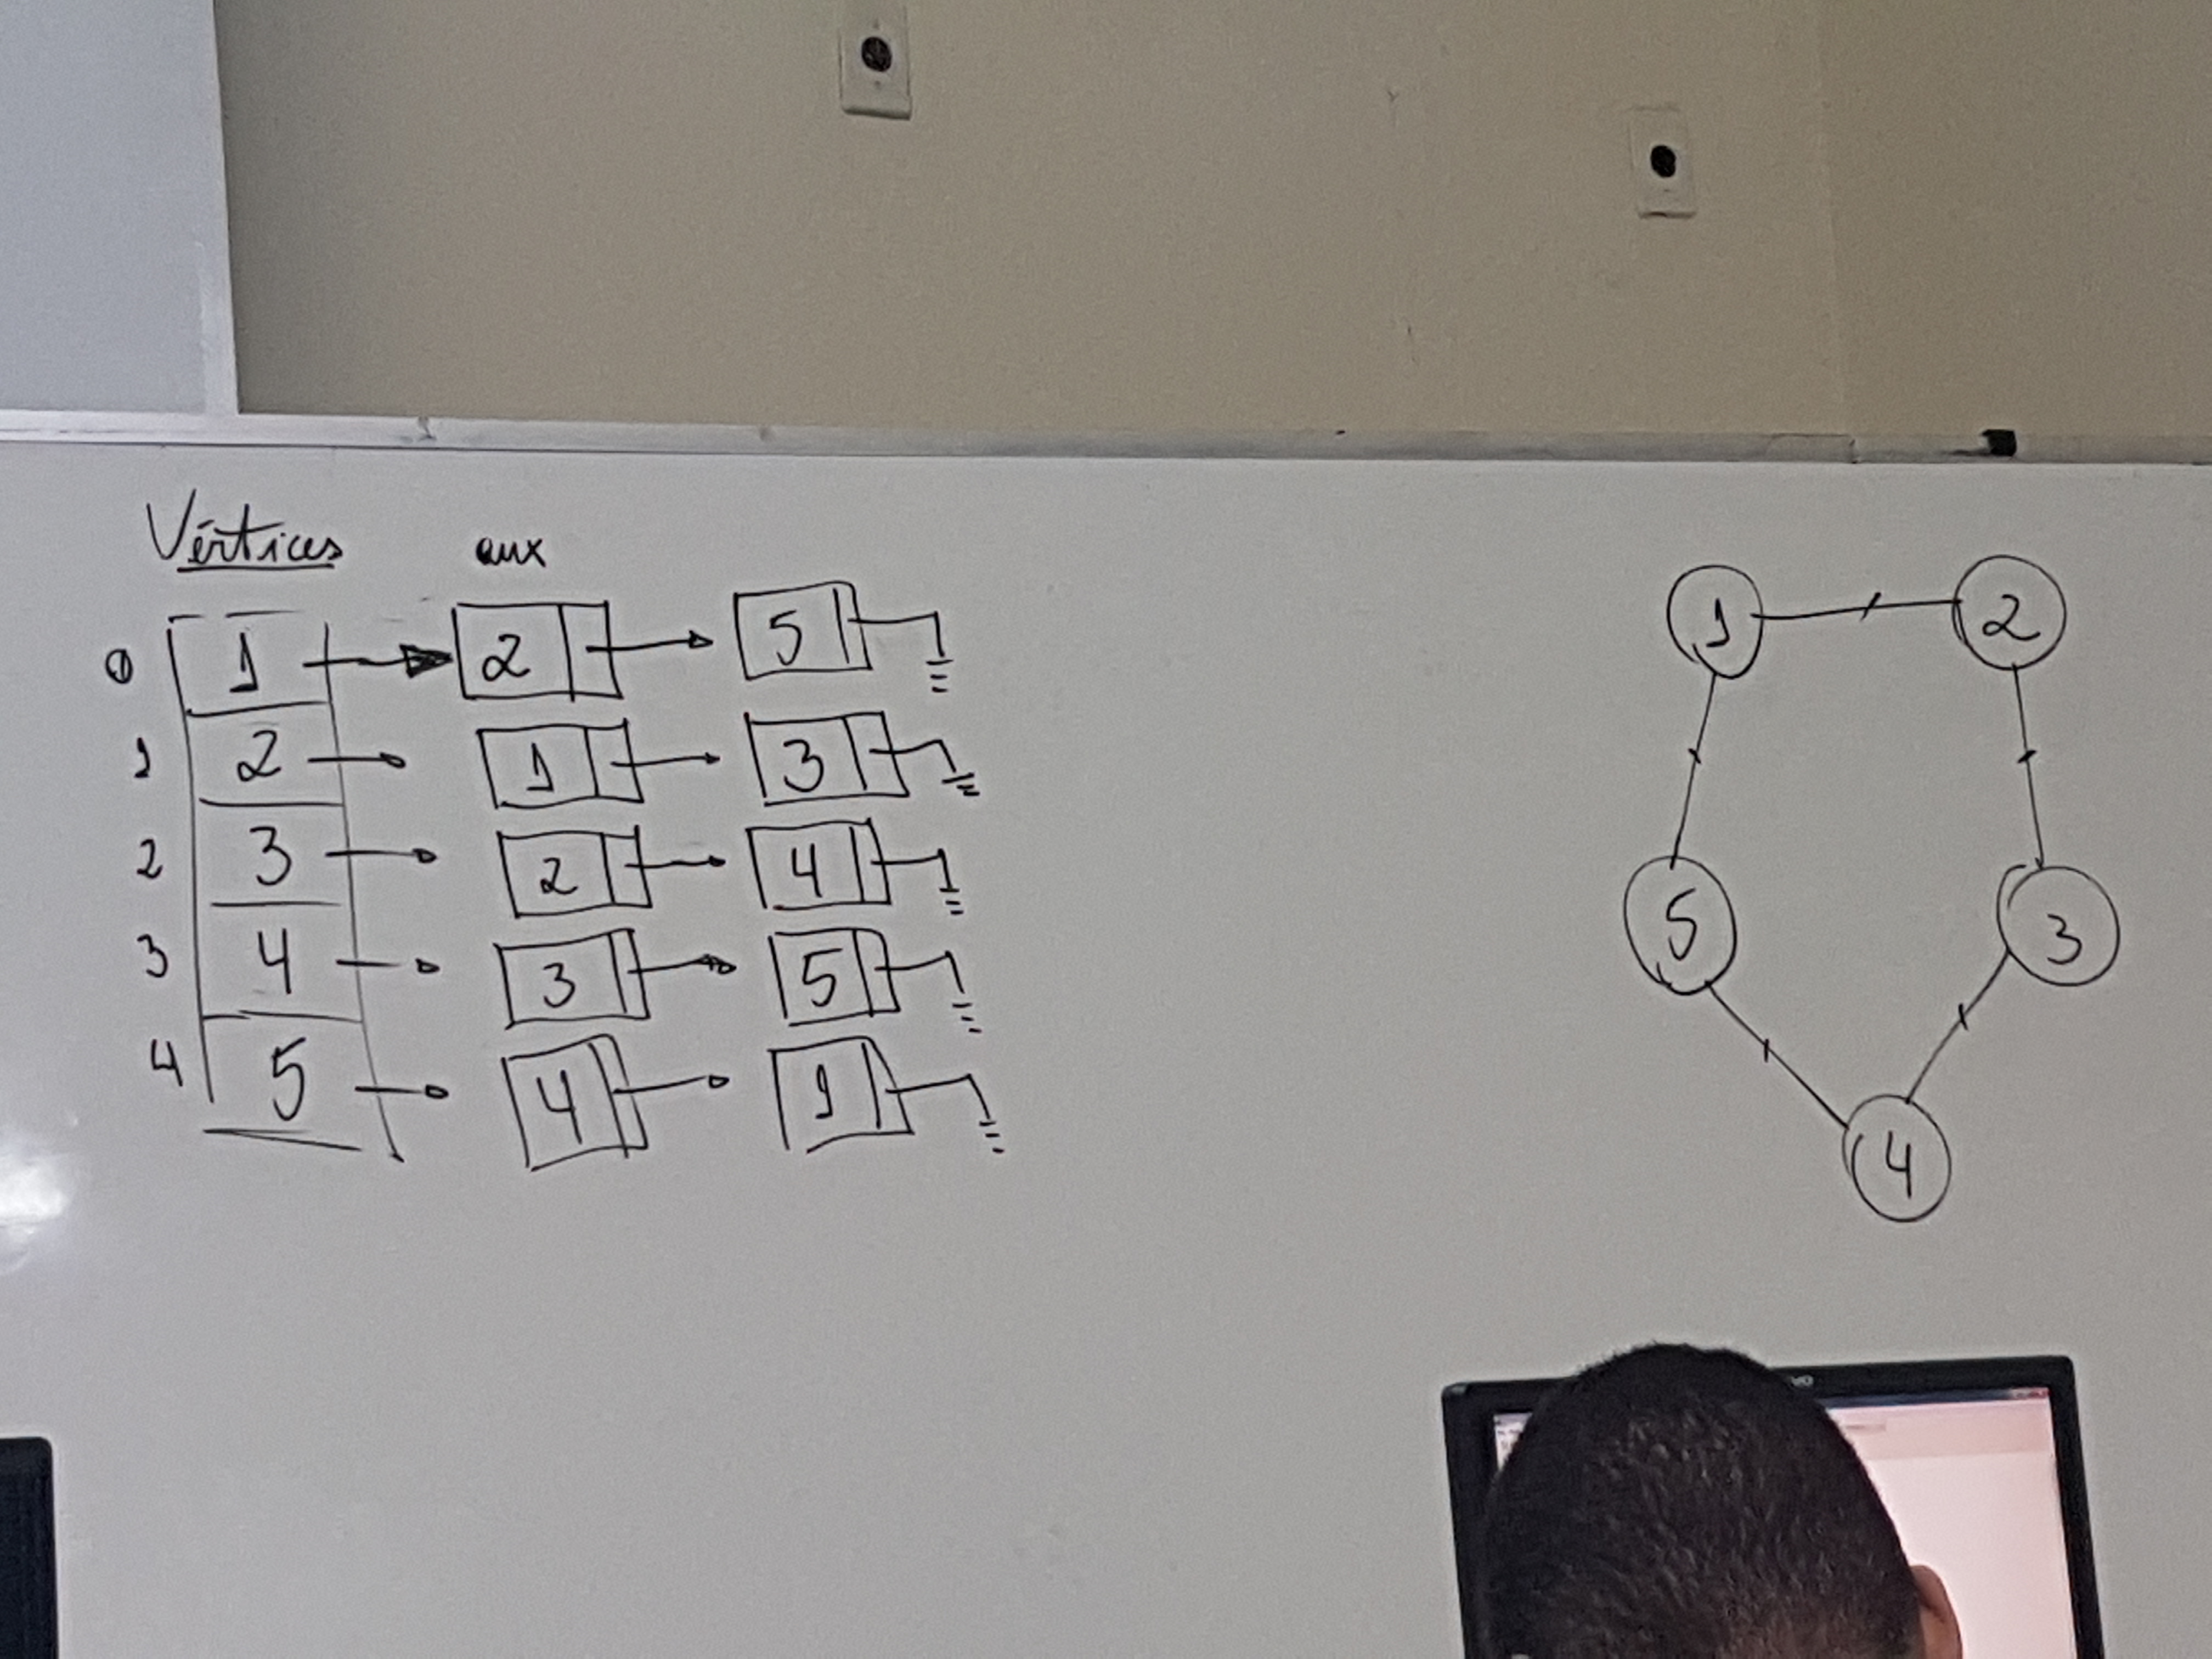 Vértices aux
0 1 2 5
1 2 1 3
2 3 2 4
3 4 3 5
4 5 4 1
1 2
5 3
4